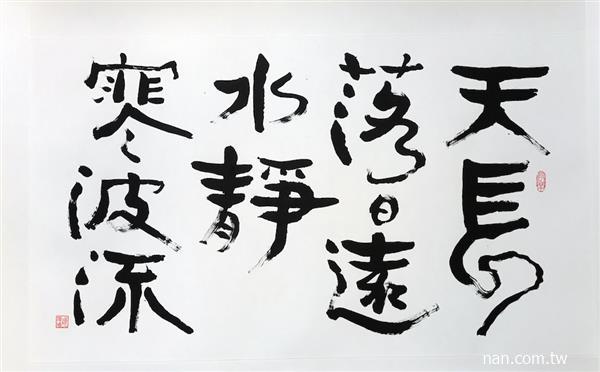 天長
落日遠
水靜
寒波流
nan.com.tw